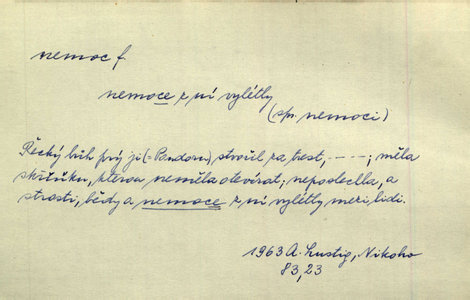 nemoc f.
nemoce z ní vylétly
(spr. nemoci)
Řecký bůh prý ji (= Pandoru) stvořil za trest, - - - -; měla
skříňku, kterou neměla otevírat; neposlechla, a
strasti, bědy a nemoce z ní vylétly mezi lidi.
1963 A. Lustig, Nikoho
83,23